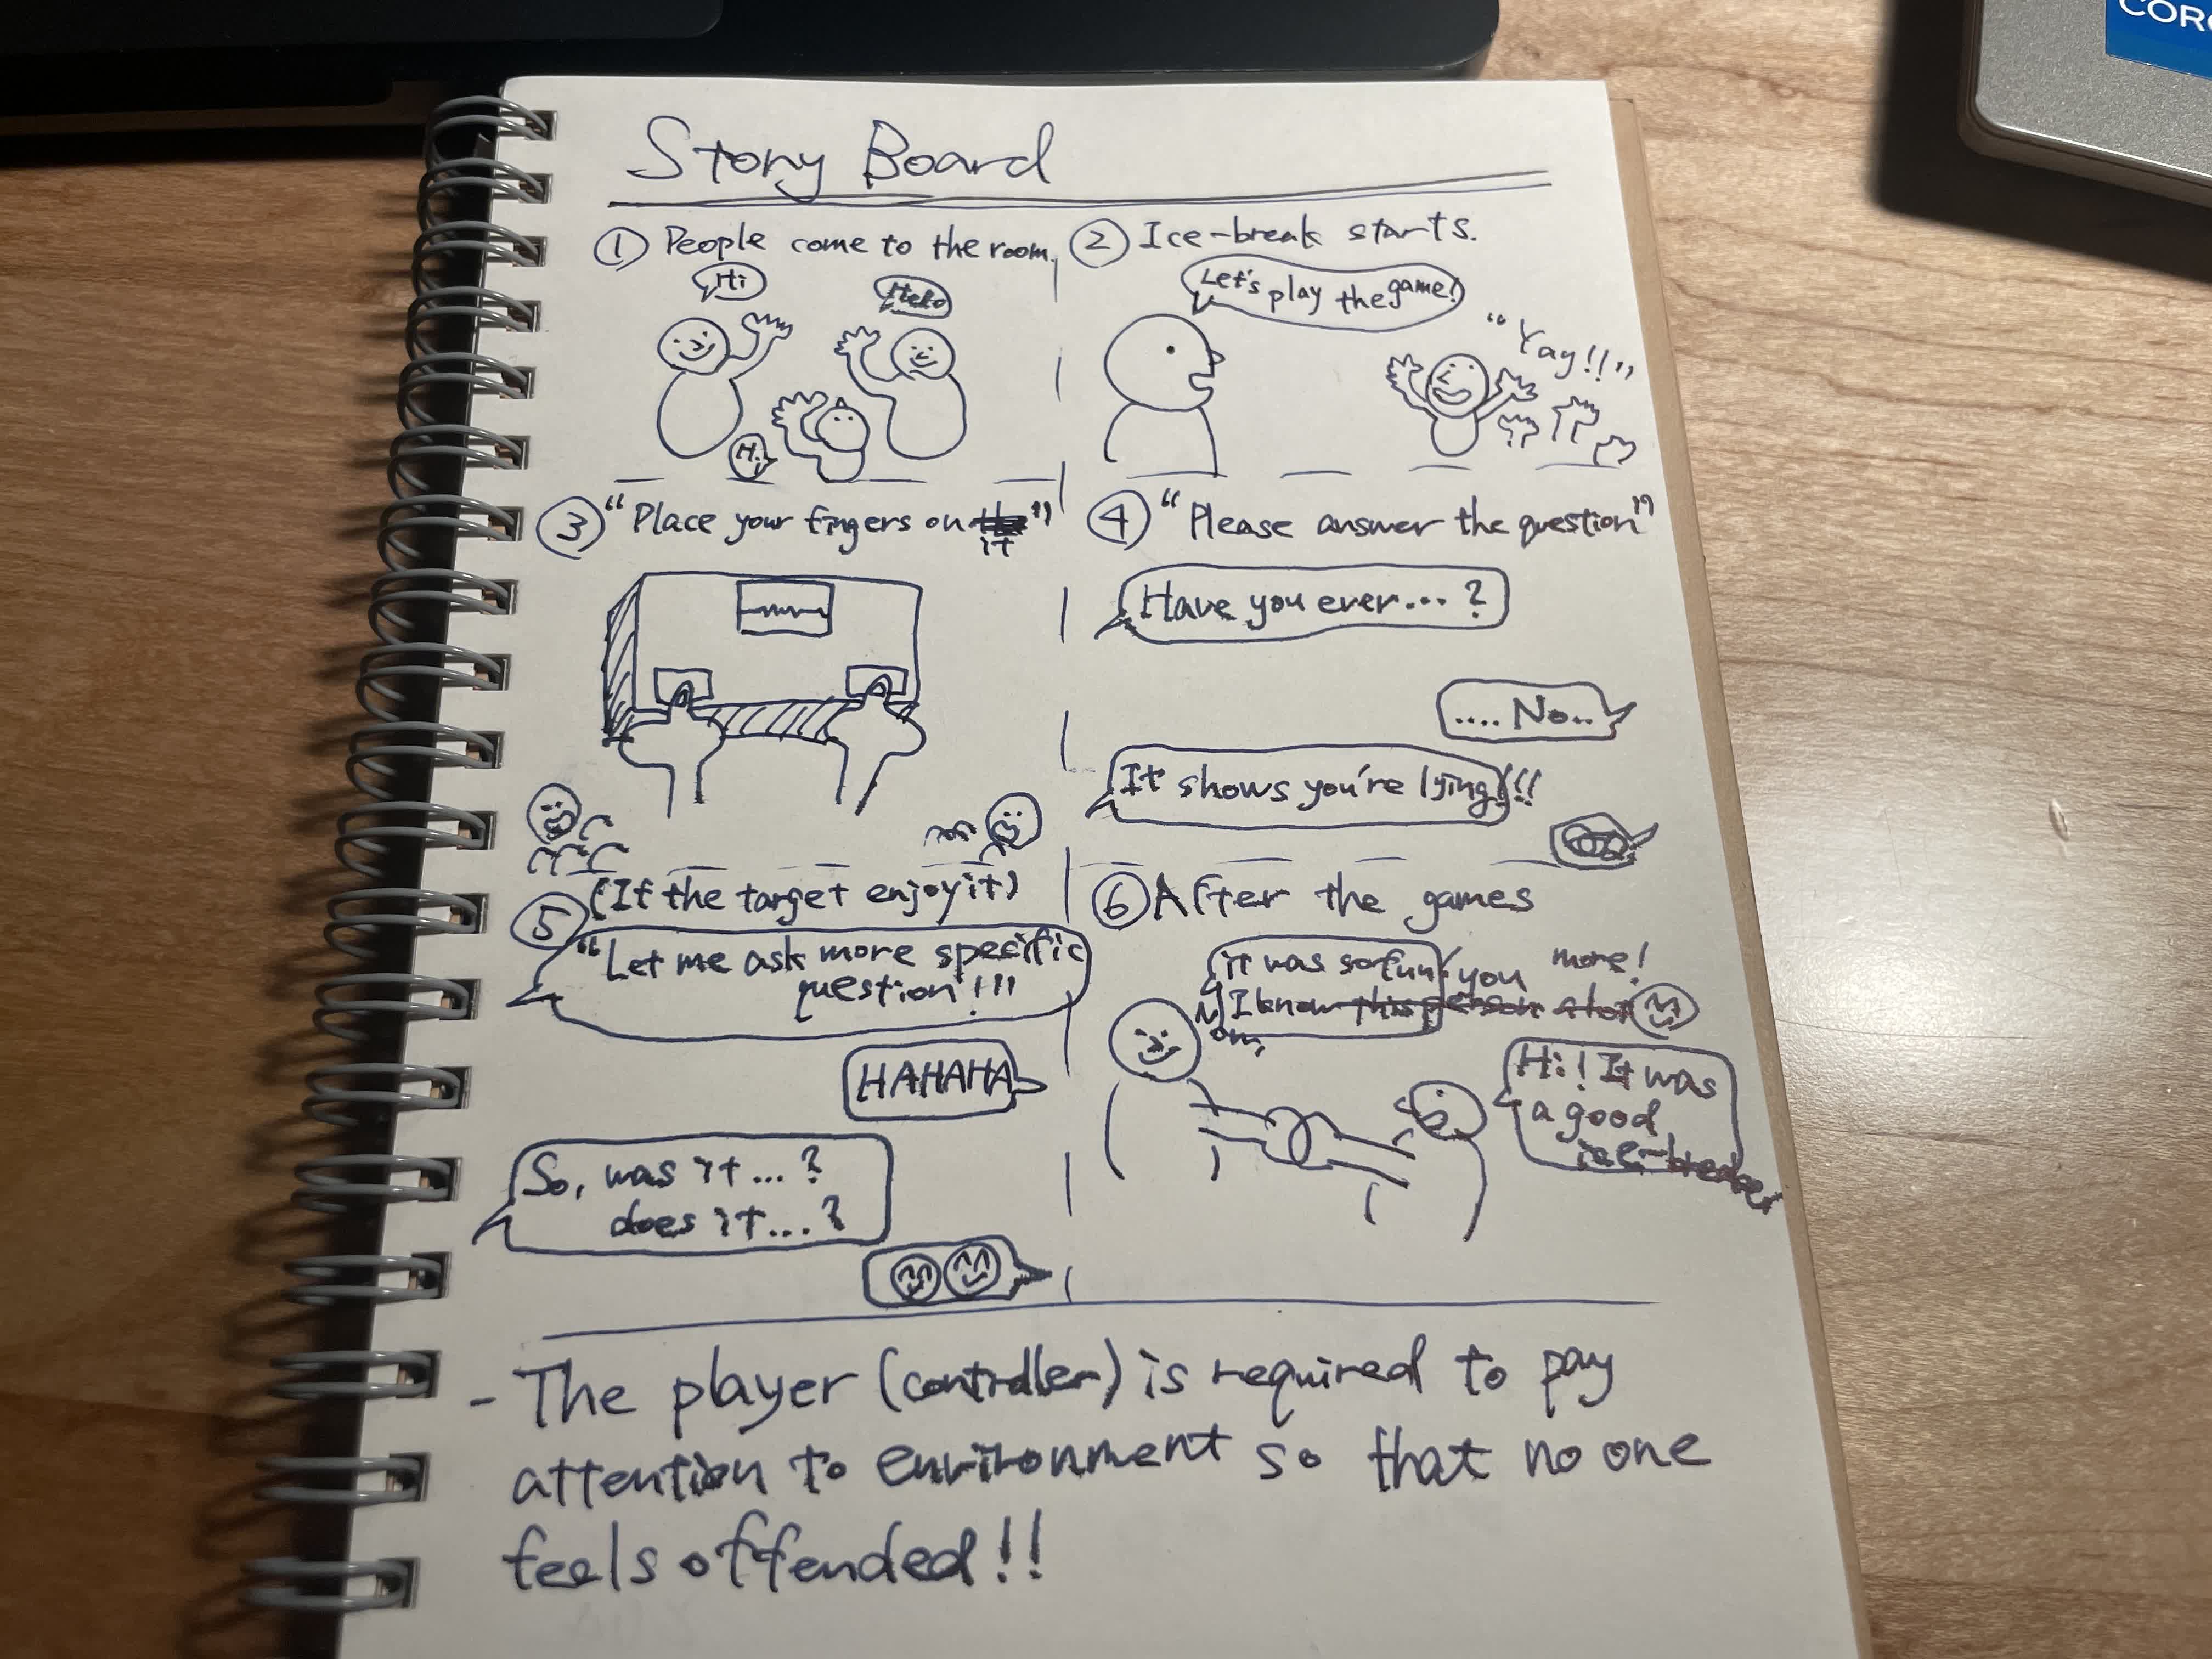 Story Board
① People come to the room.
Hi
Hello
Hi
② Ice-break starts.
Let's play the game!
"Yay!!"
③ "Place your fingers on it"
④ "Please answer the question"
Have you ever...?
.... No..
It shows you're lying!!!
⑤ (If the target enjoy it)
"Let me ask more specific
question!!"
HAHAHA
So, was it...?
does it...?
⑥ After the games
it was so fun!
Now, I know you more!
Hi! It was
a good
ice-breaker
- The player (controller) is required to pay
attention to environment so that no one
feels offended!!